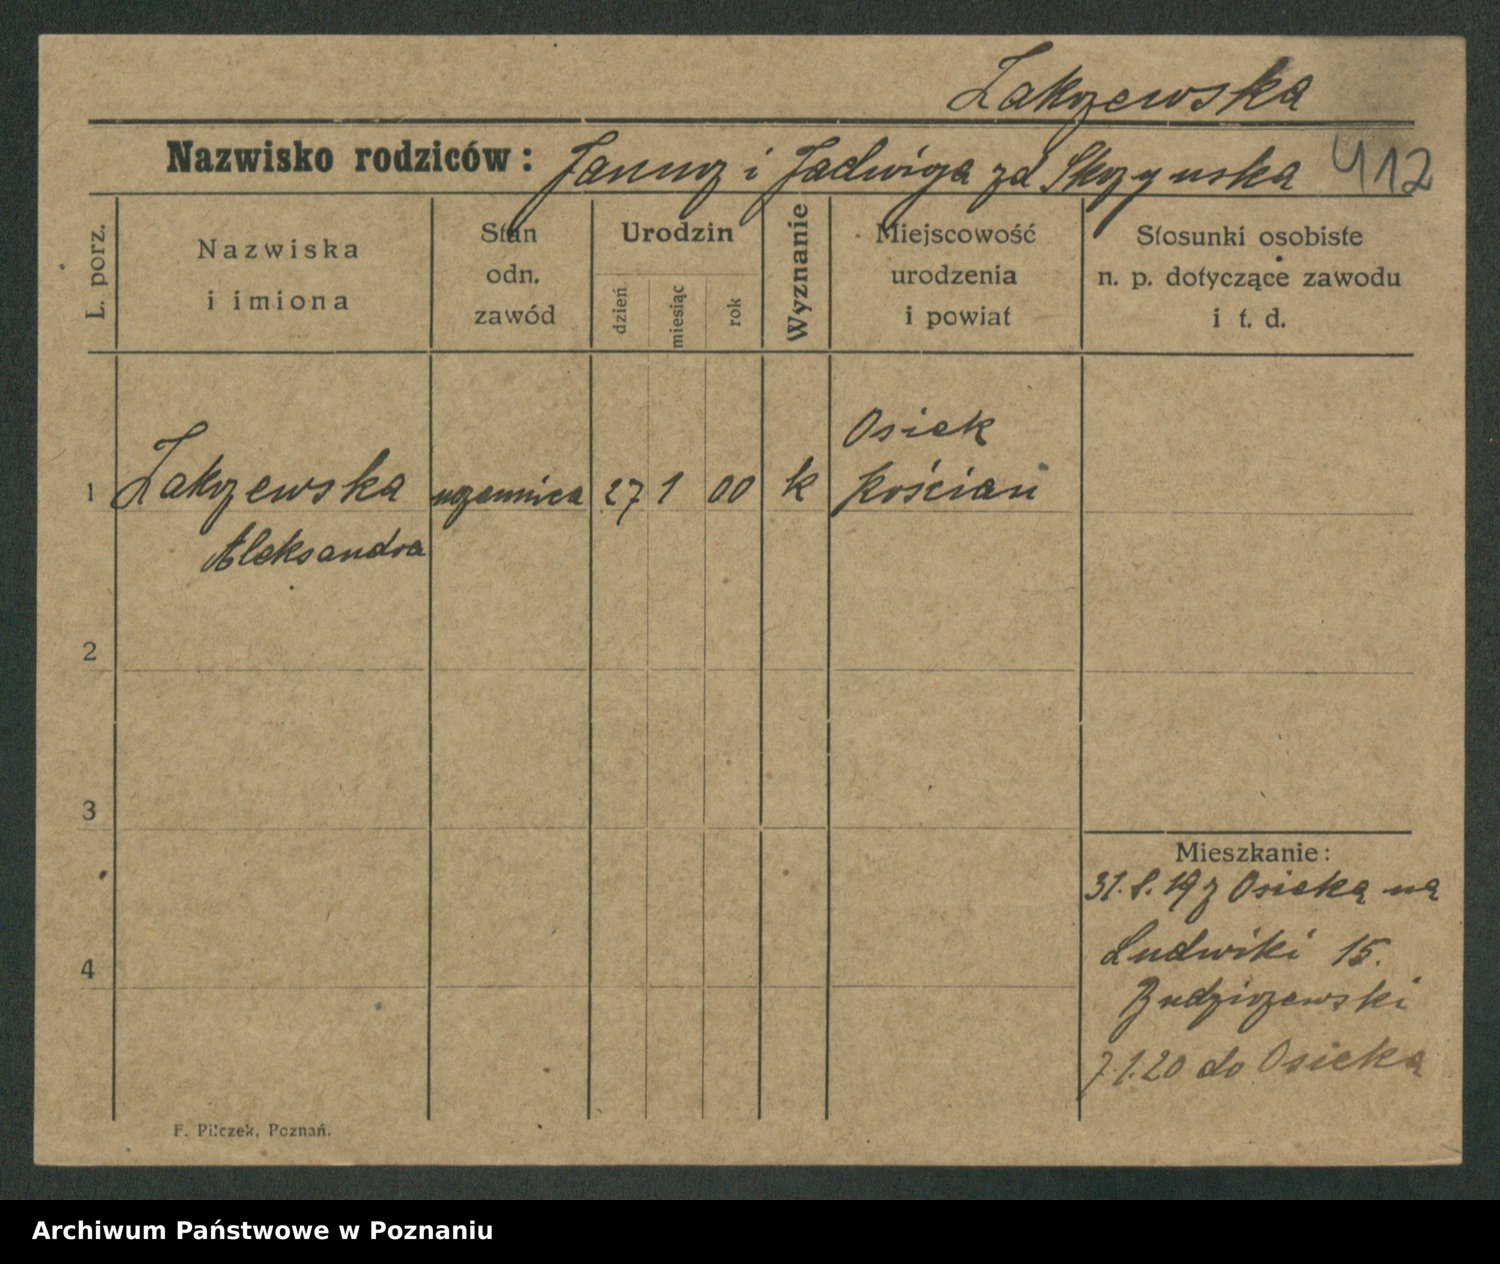 Zakrzewska
Nazwisko rodziców: Janusz i Jadwiga zd Skrzyńska 412
L. porz.
Nazwiska
i imiona
Stan
odn.
zawód
Urodzin
dzień
miesiąc
rok
Wyznanie
Miejscowość
urodzenia
i powiat
Stosunki osobiste
n. p. dotyczące zawodu
i t. d.
1 Zakrzewska uczennica 27 1 00 k Osiek
Aleksandra Kościan
2
3
4
Mieszkanie:
31.8.19 z Osieka na
Ludwiki 15.
7.1.20 do Osieka
F. Pilczek, Poznań.
Archiwum Państwowe w Poznaniu